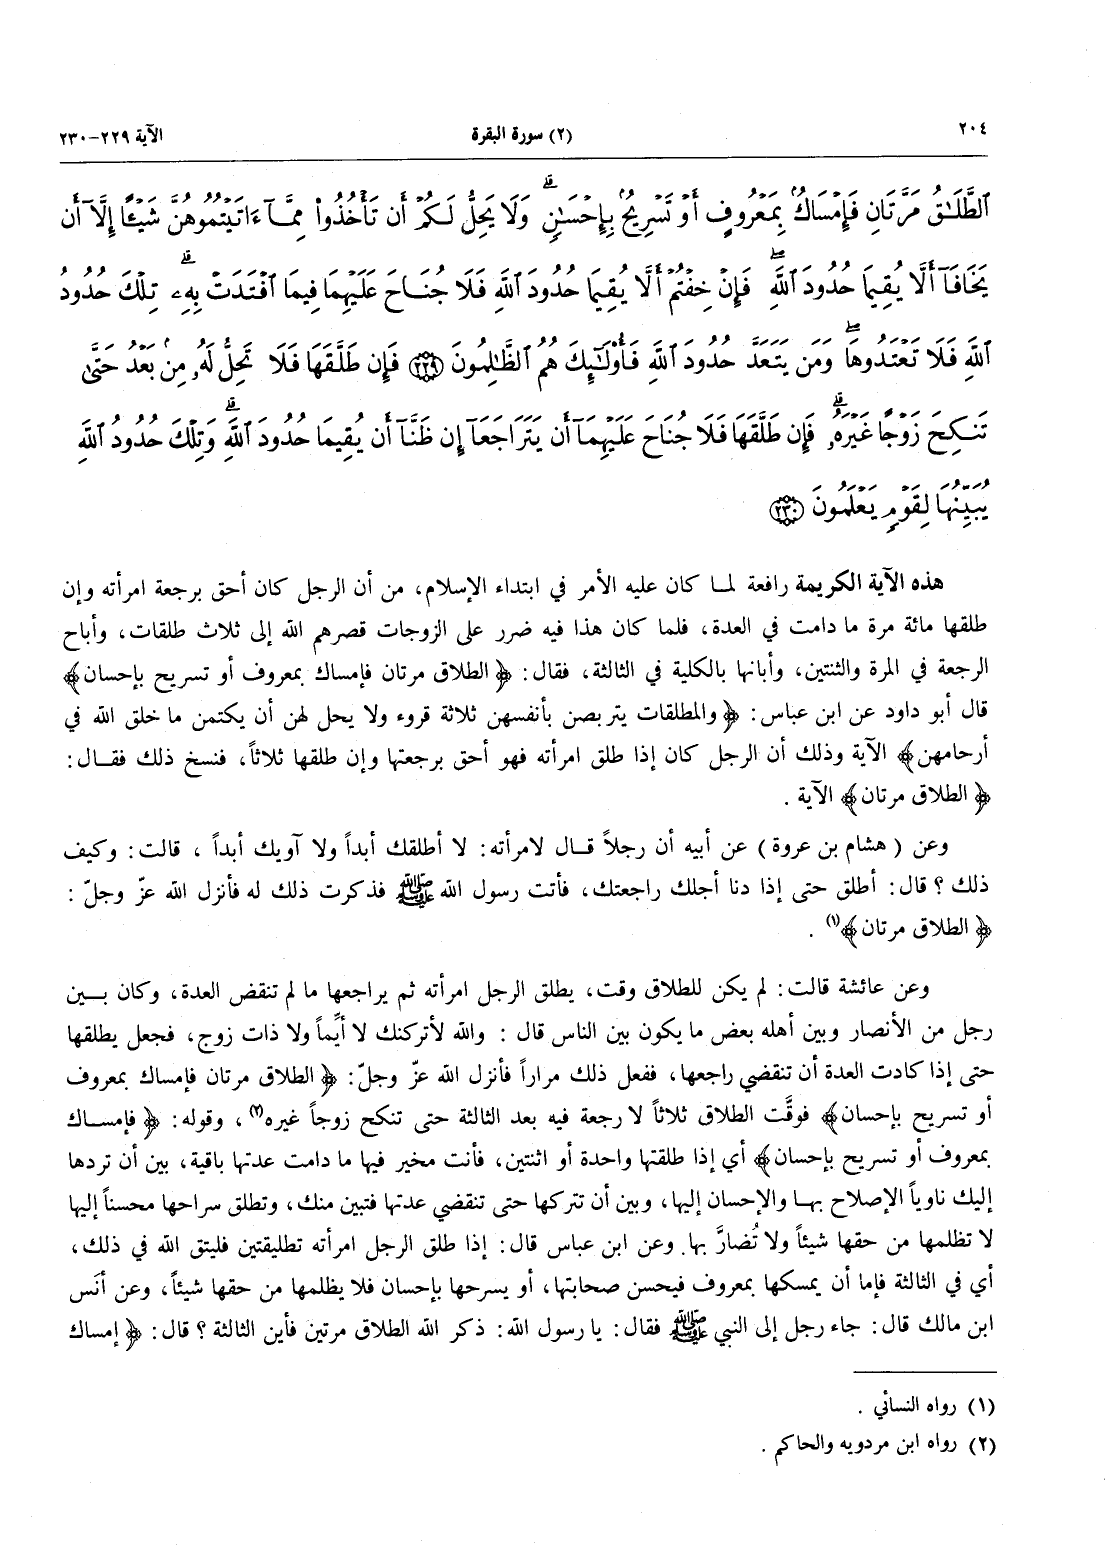 ٢٠٤ (٢) سورة البقرة الآية ٢٢٩-٢٣٠
ٱلطَّلَٰقُ مَرَّتَانِ فَإِمْسَاكٌۢ بِمَعْرُوفٍ أَوْ تَسْرِيحٌۢ بِإِحْسَٰنٍۗ وَلَا يَحِلُّ لَكُمْ أَن تَأْخُذُوا۟ مِمَّآ ءَاتَيْتُمُوهُنَّ شَيْـًٔا إِلَّآ أَن
يَخَافَآ أَلَّا يُقِيمَا حُدُودَ ٱللَّهِۖ فَإِنْ خِفْتُمْ أَلَّا يُقِيمَا حُدُودَ ٱللَّهِ فَلَا جُنَاحَ عَلَيْهِمَا فِيمَا ٱفْتَدَتْ بِهِۦۗ تِلْكَ حُدُودُ
ٱللَّهِ فَلَا تَعْتَدُوهَاۖ وَمَن يَتَعَدَّ حُدُودَ ٱللَّهِ فَأُو۟لَٰٓئِكَ هُمُ ٱلظَّٰلِمُونَ ﴿٢٢٩﴾ فَإِن طَلَّقَهَا فَلَا تَحِلُّ لَهُۥ مِنۢ بَعْدُ حَتَّىٰ
تَنكِحَ زَوْجًا غَيْرَهُۥۗ فَإِن طَلَّقَهَا فَلَا جُنَاحَ عَلَيْهِمَآ أَن يَتَرَاجَعَآ إِن ظَنَّآ أَن يُقِيمَا حُدُودَ ٱللَّهِۗ وَتِلْكَ حُدُودُ ٱللَّهِ
يُبَيِّنُهَا لِقَوْمٍ يَعْلَمُونَ ﴿٢٣٠﴾
هذه الآية الكريمة رافعة لما كان عليه الأمر في ابتداء الإسلام، من أن الرجل كان أحق برجعة امرأته وإن
طلقها مائة مرة ما دامت في العدة، فلما كان هذا فيه ضرر على الزوجات قصرهم الله إلى ثلاث طلقات، وأباح
الرجعة في المرة والثنتين، وأبانها بالكلية في الثالثة، فقال: ﴿الطلاق مرتان فإمساك بمعروف أو تسريح بإحسان﴾
قال أبو داود عن ابن عباس: ﴿والمطلقات يتربصن بأنفسهن ثلاثة قروء ولا يحل لهن أن يكتمن ما خلق الله في
أرحامهن﴾ الآية وذلك أن الرجل كان إذا طلق امرأته فهو أحق برجعتها وإن طلقها ثلاثاً، فنسخ ذلك فقال:
﴿الطلاق مرتان﴾ الآية .
وعن (هشام بن عروة) عن أبيه أن رجلاً قال لامرأته: لا أطلقك أبداً ولا آويك أبداً ، قالت: وكيف
ذلك؟ قال: أطلق حتى إذا دنا أجلك راجعتك، فأتت رسول الله ﷺ فذكرت ذلك له فأنزل الله عزّ وجلّ :
﴿الطلاق مرتان﴾(١) .
وعن عائشة قالت: لم يكن للطلاق وقت، يطلق الرجل امرأته ثم يراجعها ما لم تنقض العدة، وكان بين
رجل من الأنصار وبين أهله بعض ما يكون بين الناس قال : والله لأتركنك لا أيِّماً ولا ذات زوج، فجعل يطلقها
حتى إذا كادت العدة أن تنقضي راجعها، ففعل ذلك مراراً فأنزل الله عزّ وجلّ: ﴿الطلاق مرتان فإمساك بمعروف
أو تسريح بإحسان﴾ فوقَّت الطلاق ثلاثاً لا رجعة فيه بعد الثالثة حتى تنكح زوجاً غيره(٢)، وقوله: ﴿فإمساك
بمعروف أو تسريح بإحسان﴾ أي إذا طلقتها واحدة أو اثنتين، فأنت مخير فيها ما دامت عدتها باقية، بين أن تردها
إليك ناوياً الإصلاح بها والإحسان إليها، وبين أن تتركها حتى تنقضي عدتها فتبين منك، وتطلق سراحها محسناً إليها
لا تظلمها من حقها شيئاً ولا تُضارَّ بها. وعن ابن عباس قال: إذا طلق الرجل امرأته تطليقتين فليتق الله في ذلك،
أي في الثالثة فإما أن يمسكها بمعروف فيحسن صحابتها، أو يسرحها بإحسان فلا يظلمها من حقها شيئاً، وعن أنَس
ابن مالك قال: جاء رجل إلى النبي ﷺ فقال: يا رسول الله: ذكر الله الطلاق مرتين فأين الثالثة؟ قال: ﴿إمساك
(١) رواه النسائي .
(٢) رواه ابن مردويه والحاكم .